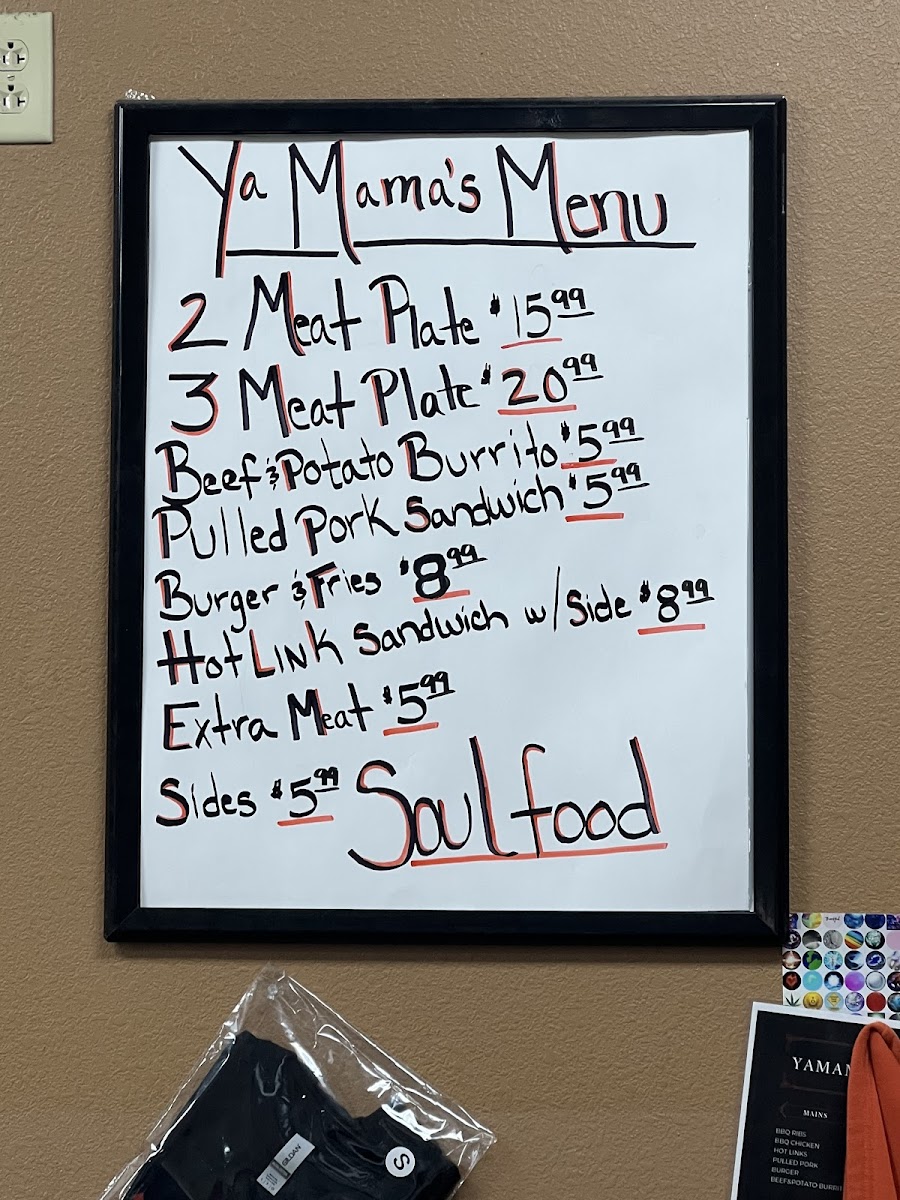 Ya Mama's Menu
2 Meat Plate $15.99
3 Meat Plate $20.99
Beef & Potato Burrito $5.99
Pulled Pork Sandwich $5.99
Burger & Fries $8.99
Hot Link Sandwich w/Side $8.99
Extra Meat $5.99
Sides $5.99
Soulfood
GILDAN
S
MAINS
BBQ RIBS
BBQ CHICKEN
HOT LINKS
PULLED PORK
BURGER